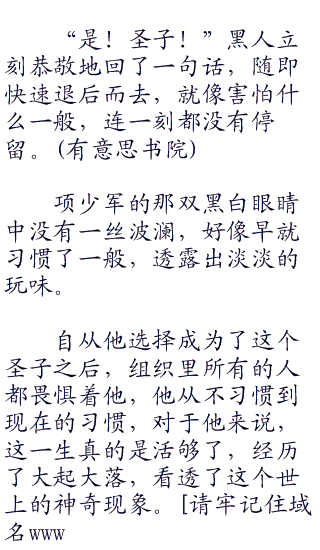 “是！圣子！”黑人立
刻恭敬地回了一句话，随即
快速退后而去，就像害怕什
么一般，连一刻都没有停
留。(有意思书院)
项少军的那双黑白眼睛
中没有一丝波澜，好像早就
习惯了一般，透露出淡淡的
玩味。
自从他选择成为了这个
圣子之后，组织里所有的人
都畏惧着他，他从不习惯到
现在的习惯，对于他来说，
这一生真的是活够了，经历
了大起大落，看透了这个世
上的神奇现象。[请牢记住域
名www